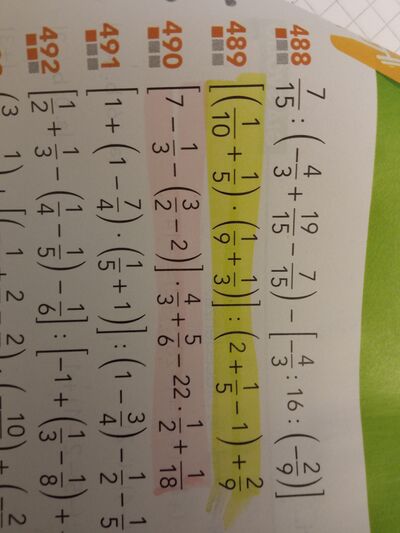 488 7/15 : (-4/3 + 19/15 - 7/15) - [-4/3 : 16 : (-2/9)]
489 [(1/10 + 1/5) · (1/9 + 1/3)] : (2 + 1/5 - 1) + 2/9
490 [7 - 1/3 - (3/2 - 2)] · 4/3 + 5/6 - 22 · 1/2 + 1/18
491 [1 + (1 - 7/4) · (1/5 + 1)] : (1 - 3/4) - 1/2 - 1/5
492 [1/2 + 1/3 - (1/4 - 1/5) - 1/6] : [-1 + (1/3 - 1/8) +